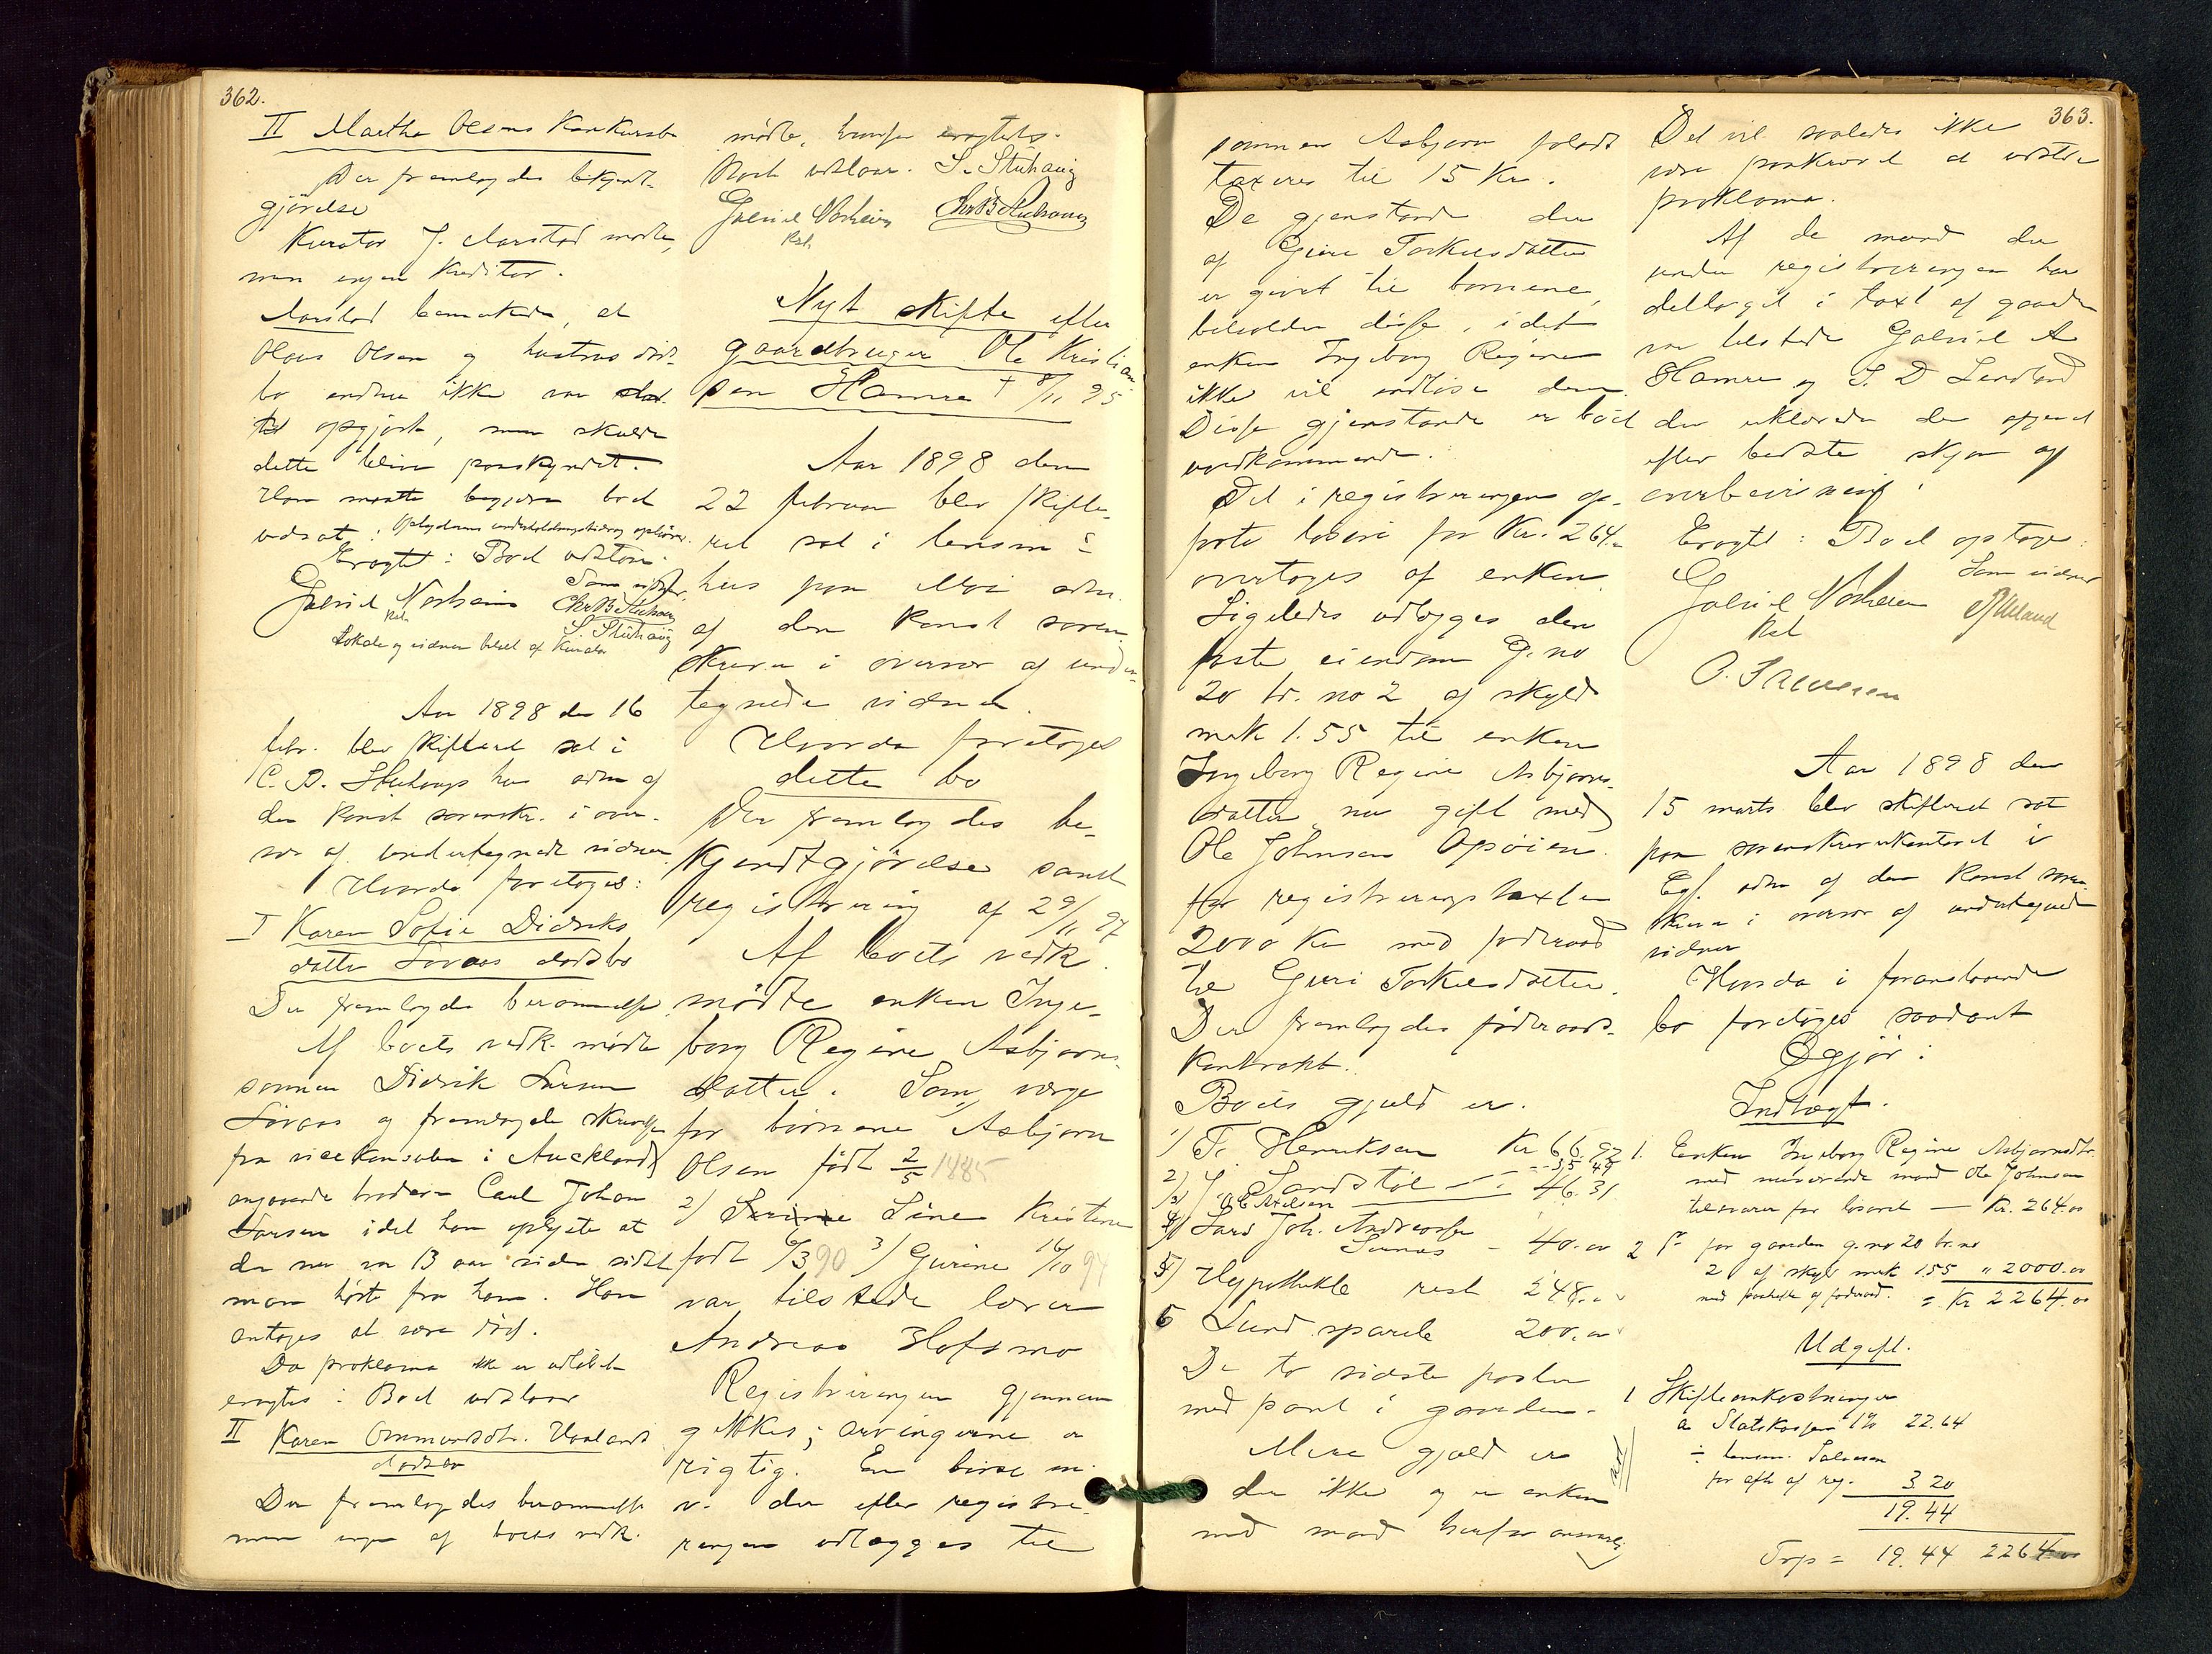 362.
II Marthe Olsens Konkursbo
Der fremlagdes bekjendt-
gjørelse
Kurator J. Aarstad mødte,
men ingen Kreditor.
Aarstad bemærkede, at
Olaus Olsen og hustrus
bo endnu ikke var
opgjort, men skulde
dette blive paaskyndet.
Han maatte begjære boet
udsat.
Eragtet: Boet udstaar.
Gabriel Nordheim
Som vidner
Chr B Stuhaug
S. Stuhaug
Lokale og vidner betalt af Kurator
Aar 1898 den 16
febr. blev skifteret sat i
C. B. Stuhaugs hus adm af
den konst sorenskr. i over-
vær af undertegnede vidner.
Hvorda foretoges:
I Karen Sofie Didriks
datter Løvaas dødsbo
Der fremlagdes berammelse.
Af boets vedk. mødte
sønnen Didrik Larsen
Løvaas og fremlagde skrivelse
fra vicekonsulen i Auckland
angaaende broderen Carl Johan
Larsen idet han oplyste at
der nu var 13 aar siden sidst
man hørte fra ham. Han
antages at være død.
Da proklama ikke er udløbet
eragtes: Boet udstaar
II Karen Ommundsdtr. Haaland
dødsbo
Der fremlagdes berammelse
men ingen af boets vedk.
mødte, hvorfor eragtedes.
Boet udstaar. S. Stuhaug
Gabriel Nordheim Chr B Stuhaug
Kst.
Nyt skifte efter
gaardbruger Ole Kristian
sen Hamre † 8/11 95
Aar 1898 den
22 februar blev skifte-
ret sat i lensm.
hus paa Moi adm.
af den konst soren-
skriver i overvær af under-
tegnede vidner.
Hvorda foretoges
dette bo
Der fremlagdes be-
kjendtgjørelse samt
registrering af 29/11 97
Af boets vedk.
mødte enken Inge-
borg Regine Asbjørns-
datter. Som værge
for børnene Asbjørn
Olsen født 2/5 1885
2/ Line Kristine
født 6/3 90 3/ Gurine 16/10 94
var tilstede lærer
Andreas Hofsmo
Registreringen gjennem
gikkes; arvingerne er
rigtig. En børse m.
v. der efter registre-
ringen udlægges til
363.
sønnen Asbjørn
taxeres til 15 Kr.
De gjenstande der
af Guri Torkelsdatter
er givet til børnene,
beholder disse, idet
enken Ingeborg Regine
ikke vil indløse dem.
Disse gjenstande er boet
uvedkommende.
Det i registreringen op-
førte løsøre for Kr. 264.-
overtages af enken.
Ligeledes udlægges den
faste eiendom G. no
20 br. no 2 af skyld
mark 1.55 til enken
Ingeborg Regine Asbjørns-
datter nu gift med
Ole Johnsen Opsøien
for registreringstaxten
2000 Kr med føderaad
til Guri Torkelsdatter.
Der fremlagdes føderaads-
kontrakt.
Boets gjæld er.
1) F. Henriksen Kr 66.92
2) J. Sandstøl 35.47
3) O. C. Axelsen 46.31
4) Lars Joh. Andreassen
- 40.00
5) Hypothekb rest 248.00
6 Lund spareb 200.00
De to sidste poster
med pant i gaarden.
Mere gjæld er
der ikke og er enken
med mand herfor ansvarlig
Det vil saaledes ikke
være paakrævet at udstede
proklama.
Af de mænd der
under registreringen har
deltaget i taxt af gaarden
var tilstede Gabriel A
Hamre og S. D Lendland
der erklærede den afgivet
efter bedste skjøn og
overbevisning.
Eragtet: Boet optages.
Som vidner
Gabriel Nordheim
Kst
O. Salvesen
Aar 1898 den
15 marts blev skifteret sat
paa sorenskriverkontoret i
Egs. adm af den konst soren-
skriver i overvær af undertegnede
vidner
Hvorda i foranstaaende
bo foretoges saadant
Opgjør:
Indtægt.
1. Enken Ingeborg Regine Asbjørnsdtr.
med nuværende mand Ole Johnsen
tilsvarer for løsøret — Kr. 264.00
2 for gaarden g. no 20 br. no
2 af skyld mark 1.55 " 2000.00
med paahefte af føderaad. = Kr 2264.00
Udgift.
1 Skifteomkostninger
a Statskassen 1% 22.64
÷ lensm. Salvesen
for afh af reg. 3.20
19.44
Trsp = 19.44 2264.00